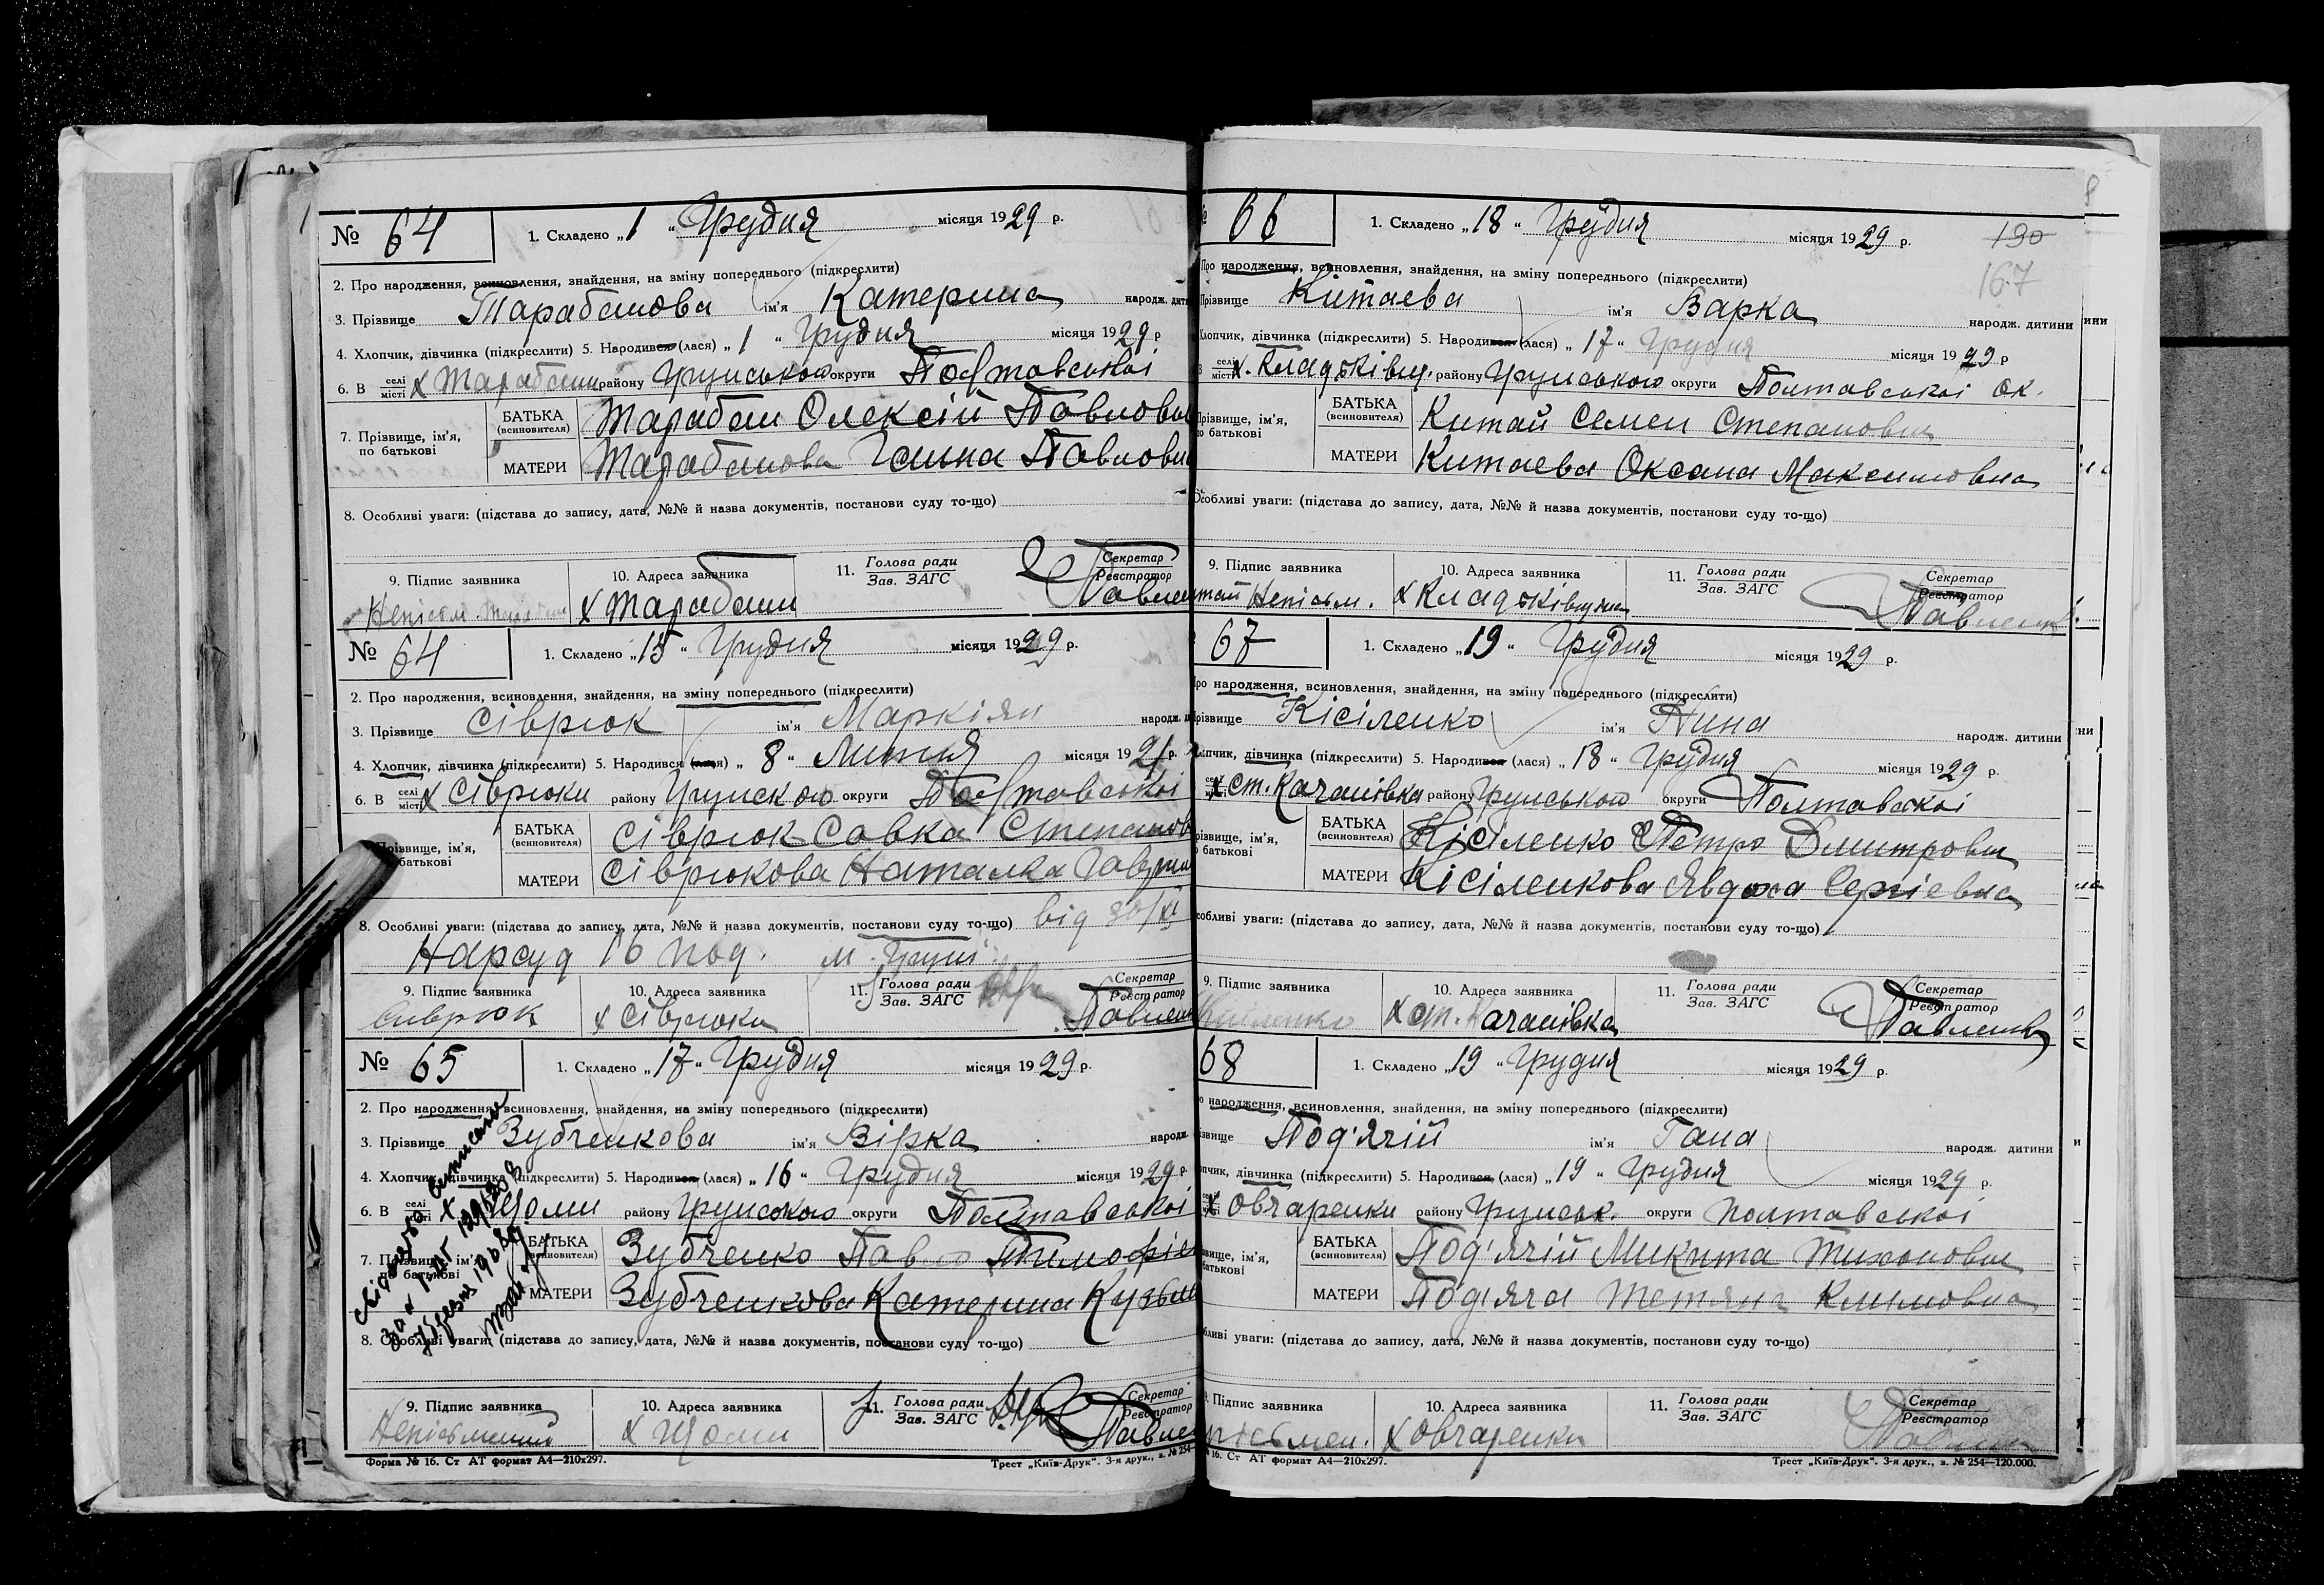 № 64 1. Складено „1“ Грудня місяця 1929 р.
2. Про народження, всиновлення, знайдення, на зміну попереднього (підкреслити)
3. Прізвище Тарабанова ім'я Катерина народж. дити
4. Хлопчик, дівчинка (підкреслити) 5. Народився (лася) „1“ Грудня місяця 1929 р
6. В селі місті х Тарабани району Грунського округи Полтавської
7. Прізвище, ім'я, по батькові
БАТЬКА (всиновителя) Тарабан Олексій Павлови
МАТЕРИ Тарабанова Ганна Павловн
8. Особливі уваги: (підстава до запису, дата, №№ й назва документів, постанови суду то-що)
9. Підпис заявника 10. Адреса заявника 11. Голова ради Зав. ЗАГС Секретар Реєстратор
Непісьм. х Тарабани Павлен
№ 64 1. Складено „15“ Грудня місяця 1929 р.
2. Про народження, всиновлення, знайдення, на зміну попереднього (підкреслити)
3. Прізвище Сіврюк ім'я Маркіян народж.
4. Хлопчик, дівчинка (підкреслити) 5. Народився (лася) „8“ Липня місяця 1921 р.
6. В селі місті х Сіврюки району Грунского округи Полтавської
Прізвище, ім'я, батькові
БАТЬКА (всиновителя) Сіврюк Савка Степанов
МАТЕРИ Сіврюкова Наталка Гаври
8. Особливі уваги: (підстава до запису, дата, №№ й назва документів, постанови суду то-що) від 30/XI
Нарсуд 16 м. Груні
9. Підпис заявника 10. Адреса заявника 11. Голова ради Зав. ЗАГС Секретар Реєстратор
Сиврюк х Сіврюки Павлен
№ 65 1. Складено „17“ Грудня місяця 1929 р.
2. Про народження, всиновлення, знайдення, на зміну попереднього (підкреслити)
3. Прізвище Зубченкова ім'я Вірка народж.
4. Хлопчик, дівчинка (підкреслити) 5. Народився (лася) „16“ Грудня місяця 1929 р.
6. В селі місті х. Щоми району Грунского округи Полтавської
7. Прізвище, ім'я, по батькові
БАТЬКА (всиновителя) Зубченко Павло Тимофіє
МАТЕРИ Зубченкова Катерина Кузьм
8. Особливі уваги: (підстава до запису, дата, №№ й назва документів, постанови суду то-що)
9. Підпис заявника 10. Адреса заявника 11. Голова ради Зав. ЗАГС Секретар Реєстратор
Непісьменний х Щоми Павле
Форма № 16. Ст АТ формат А4—210х297. Трест „Київ-Друк“. 3-я друк., з. № 254
66 1. Складено „18“ Грудня місяця 1929 р.
190
167
Про народження, всиновлення, знайдення, на зміну попереднього (підкреслити)
Прізвище Китаева ім'я Варка народж. дитини
Хлопчик, дівчинка (підкреслити) 5. Народився (лася) „17“ Грудня місяця 1929 р
селі місті х. району Грунського округи Полтавської ок.
Прізвище, ім'я, по батькові
БАТЬКА (всиновителя) Китай Семен Степанович
МАТЕРИ Китаева Оксана Максимовна
Особливі уваги: (підстава до запису, дата, №№ й назва документів, постанови суду то-що)
9. Підпис заявника 10. Адреса заявника 11. Голова ради Зав. ЗАГС Секретар Реєстратор
Непісьм. Павленк
67 1. Складено „19“ Грудня місяця 1929 р.
Про народження, всиновлення, знайдення, на зміну попереднього (підкреслити)
Прізвище Кісіленко ім'я Нина народж. дитини
Хлопчик, дівчинка (підкреслити) 5. Народився (лася) „18“ Грудня місяця 1929 р.
х ст. Качанівка району Грунського округи Полтавської
Прізвище, ім'я, батькові
БАТЬКА (всиновителя) Кісіленко Петро Дмитрович
МАТЕРИ Кісіленкова Явдоха Сергіевна
Особливі уваги: (підстава до запису, дата, №№ й назва документів, постанови суду то-що)
9. Підпис заявника 10. Адреса заявника 11. Голова ради Зав. ЗАГС Секретар Реєстратор
х ст. Качанівка Павленко
68 1. Складено „19“ Грудня місяця 1929 р.
народження, всиновлення, знайдення, на зміну попереднього (підкреслити)
Под'ячій ім'я Гана народж. дитини
дівчинка (підкреслити) 5. Народився (лася) „19“ Грудня місяця 1929 р.
х Овчаренки району Грунськ. округи Полтавської
БАТЬКА (всиновителя) Под'ячій Микита Тихонович
МАТЕРИ Под'яча Тетяна Климовна
уваги: (підстава до запису, дата, №№ й назва документів, постанови суду то-що)
Підпис заявника 10. Адреса заявника 11. Голова ради Зав. ЗАГС Секретар Реєстратор
х Овчаренки
16. Ст АТ формат А4—210х297. Трест „Київ-Друк“. 3-я друк., з. № 254—120.000.